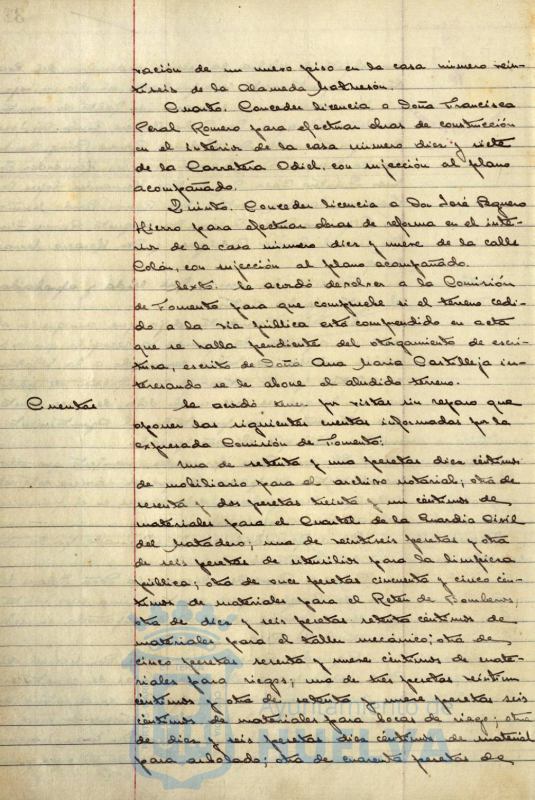 ración de un nuevo piso en la casa número vein-
tiseis de la Alameda
Cuarto. Conceder licencia a Doña Francisca
Peral Romero para efectuar obras de construcción
en el interior de la casa número diez y siete
de la Carretera Odiel, con sujección al plano
acompañado.
Quinto. Conceder licencia a Don José Peguero
Hierro para efectuar obras de reforma en el inte-
rior de la casa número diez y nueve de la calle
Colón, con sujección al plano acompañado.
Sexto. Se acordó devolver a la Comisión
de Fomento para que compruebe si el terreno cedi-
do a la vía pública está comprendido en acta
que se halla pendiente del otorgamiento de escri-
tura, escrito de Doña Ana María Castilleja in-
teresando se le abone el aludido terreno.
Cuentas
Se acordó tener por vistas sin reparo que
oponer las siguientes cuentas informadas por la
expresada Comisión de Fomento:
Una de setenta y una pesetas diez céntimos
de mobiliario para el archivo notarial; otra de
sesenta y dos pesetas treinta y un céntimos de
materiales para el Cuartel de la Guardia Civil
del Matadero; una de veintiseis pesetas y otra
de seis pesetas de utensilios para la limpieza
pública; otra de once pesetas cincuenta y cinco cén-
timos de materiales para el Reten de Bomberos;
otra de diez y seis pesetas setenta céntimos de
materiales para el taller mecánico; otra de
cinco pesetas sesenta y nueve céntimos de mate-
riales para riegos; una de tres pesetas veintiun
céntimos y otra de setenta y nueve pesetas seis
céntimos de materiales para bocas de riego; otra
de diez y seis pesetas diez céntimos de material
para arbolado; otra de cuarenta pesetas de
Ayuntamiento de
HUELVA